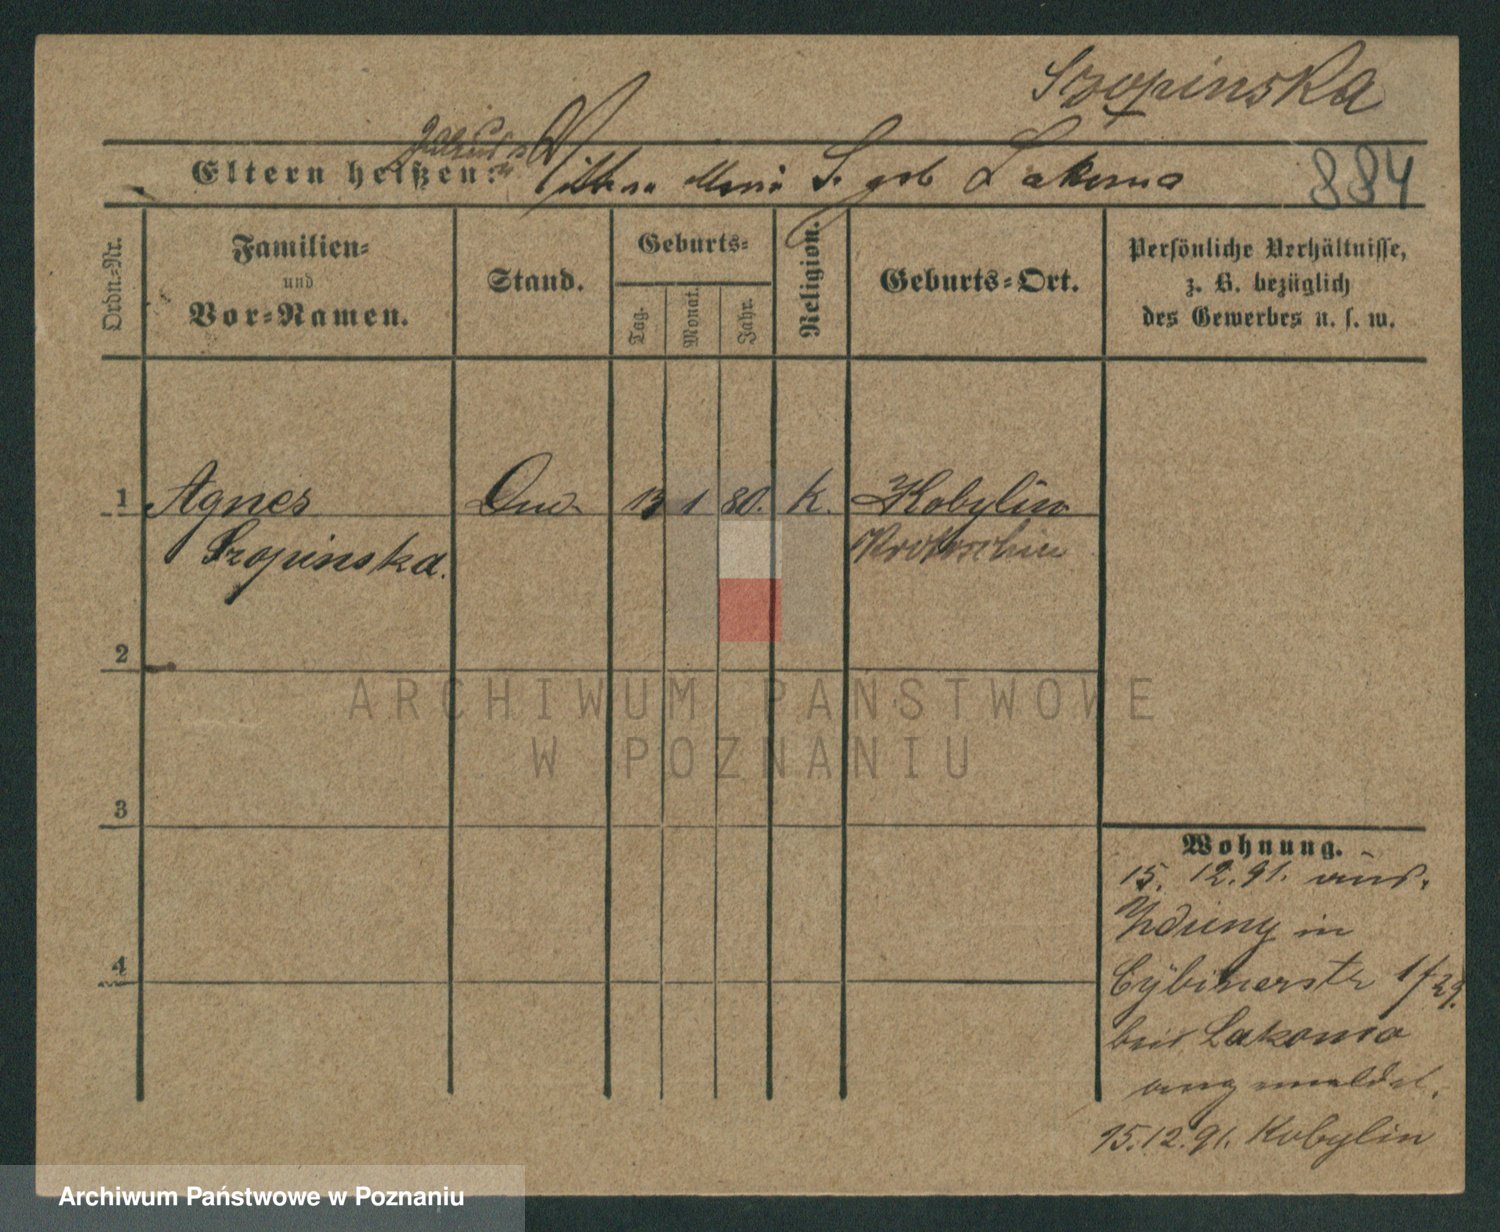 Szopinska
Eltern heißen: Marie S. geb Lakoma
884
Ordn.-Nr.
Familien-
und
Vor-Namen.
Stand.
Geburts-
Tag.
Monat.
Jahr.
Religion.
Geburts-Ort.
Persönliche Verhältnisse,
z. B. bezüglich
des Gewerbes u. s. w.
1 Agnes 13 1 80. K. Kobylin
Szopinska. Krotoschin
2
ARCHIWUM PAŃSTWOWE
W POZNANIU
3
4
Wohnung.
15. 12. 91. aus
in
Cybinerstr 1/29.
bei Lakoma
angemeldet.
15.12.91. Kobylin
Archiwum Państwowe w Poznaniu